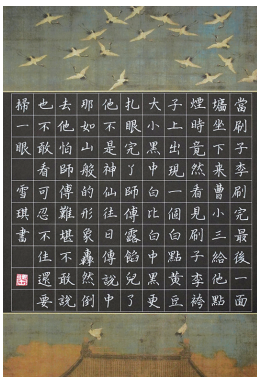 當刷子李刷完最後一面
墻坐下來曹小三給他點
煙時竟然看見刷子李褲
子上出現一個白點黃豆
大小黑中白比白中黑更
扎眼完了師傅露餡兒了
他不是神仙往日傳說中
那如山般的形象轟然倒
去他怕師傅難堪不敢說
也不敢看可忍不住還要
掃一眼 雪琪書